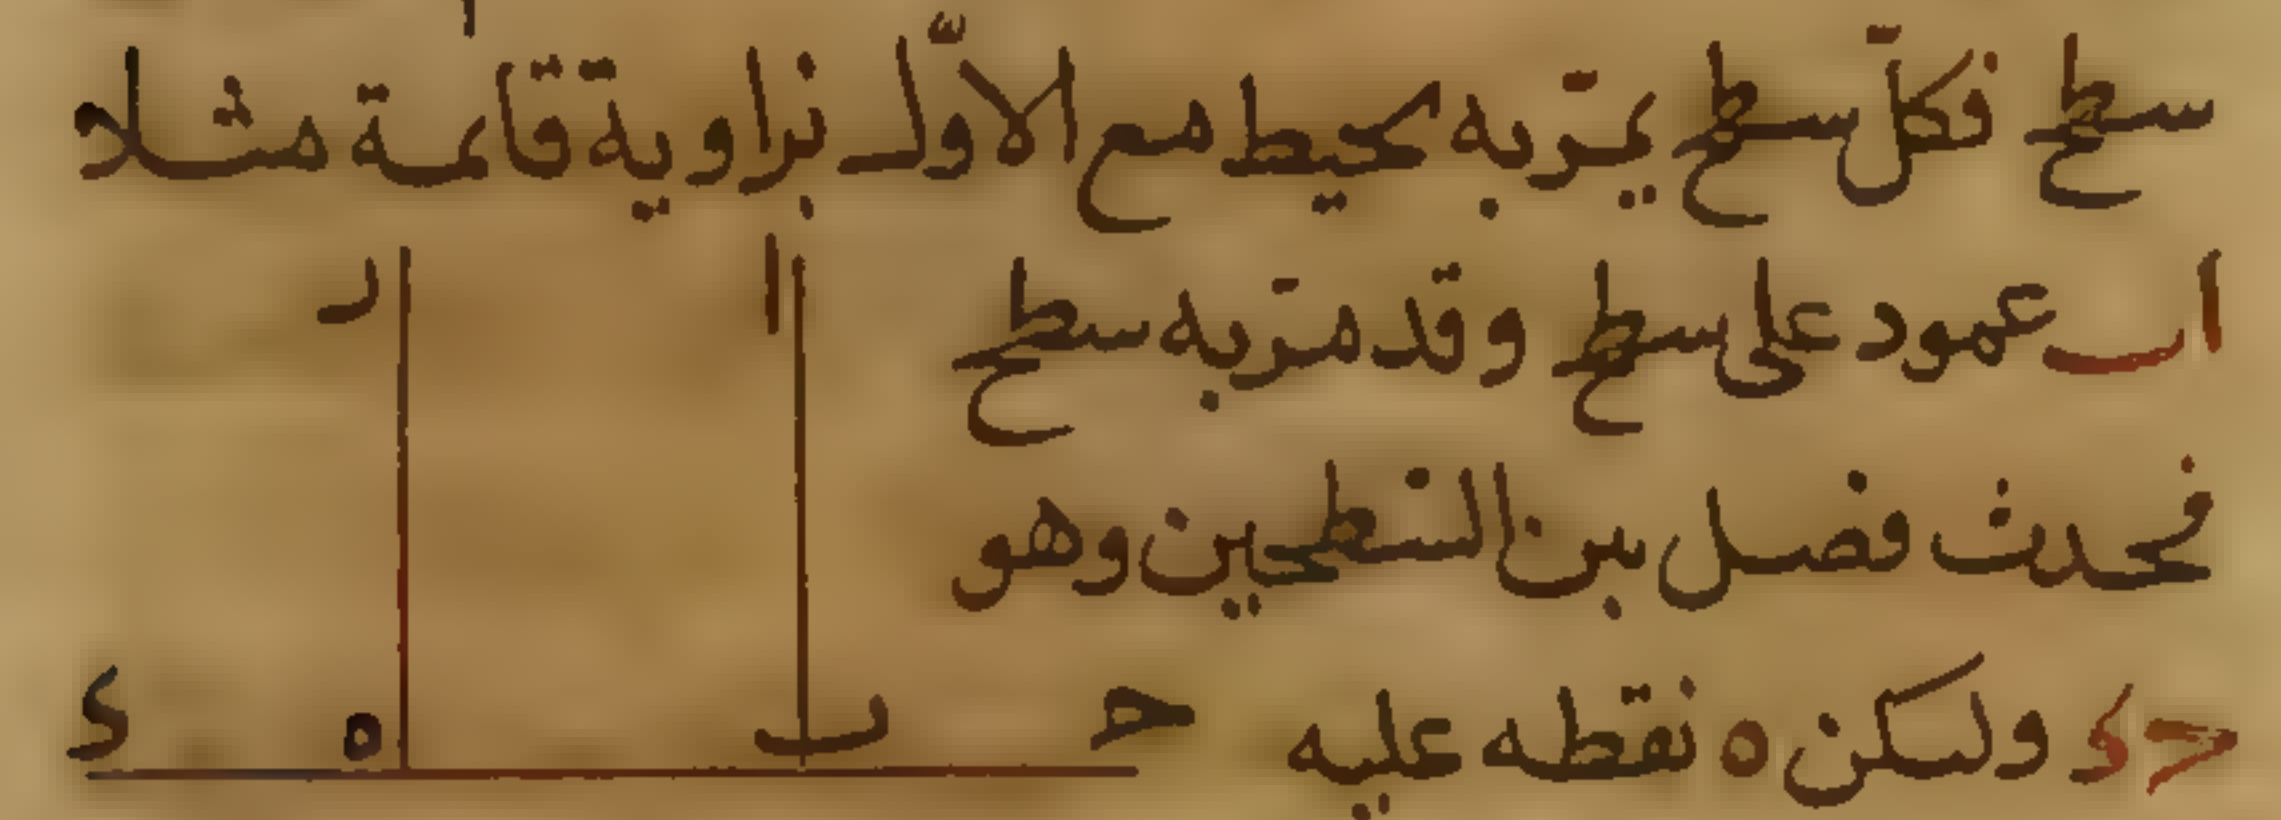 سطح فكلّ سطح يمرّ به يحيط مع الاوّل بزاوية قائمة مثلا
اٮ عمود على سطح وقد مرّ به سطح
ر ا
فحدث فصل بين السطحين وهو
حد ولكن ه نقطه عليه
ح ٮ ه د